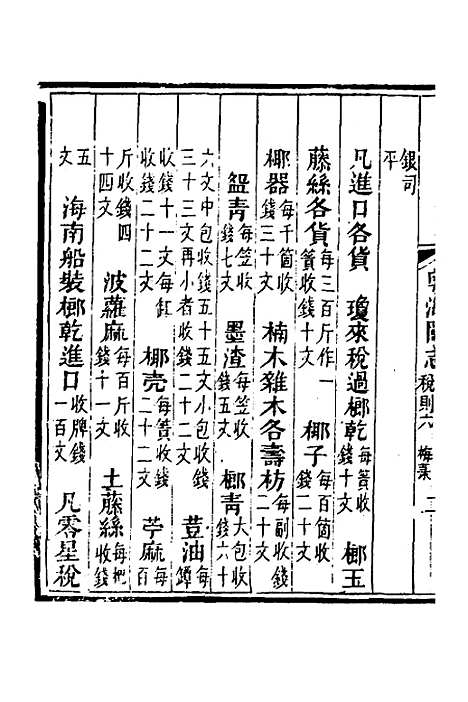 粵海關志 稅則六 梅菉
銀司
平
凡進口各貨 瓊來稅過榔乾每簀收錢十文 榔玉
藤絲各貨每三百斤作一簀收錢十文 榔子每百箇收錢二十文
椰器每千箇收錢三十文 楠木雜木各壽枋每副收錢二十文
盌青每笠收錢七文 墨渣每笠收錢五文 榔青大包收錢六十
六文中包收錢五十五文小包收錢三十三文再小者收錢二十二文 荳油每罈
收錢十一文每缸收錢二十二文 椰壳每簀收錢二十二文 苧麻每百
斤收錢四十四文 波蘿麻每百斤收錢十一文 土藤絲每把收錢
五文 海南船裝榔乾進口收牌錢一百文 凡零星稅